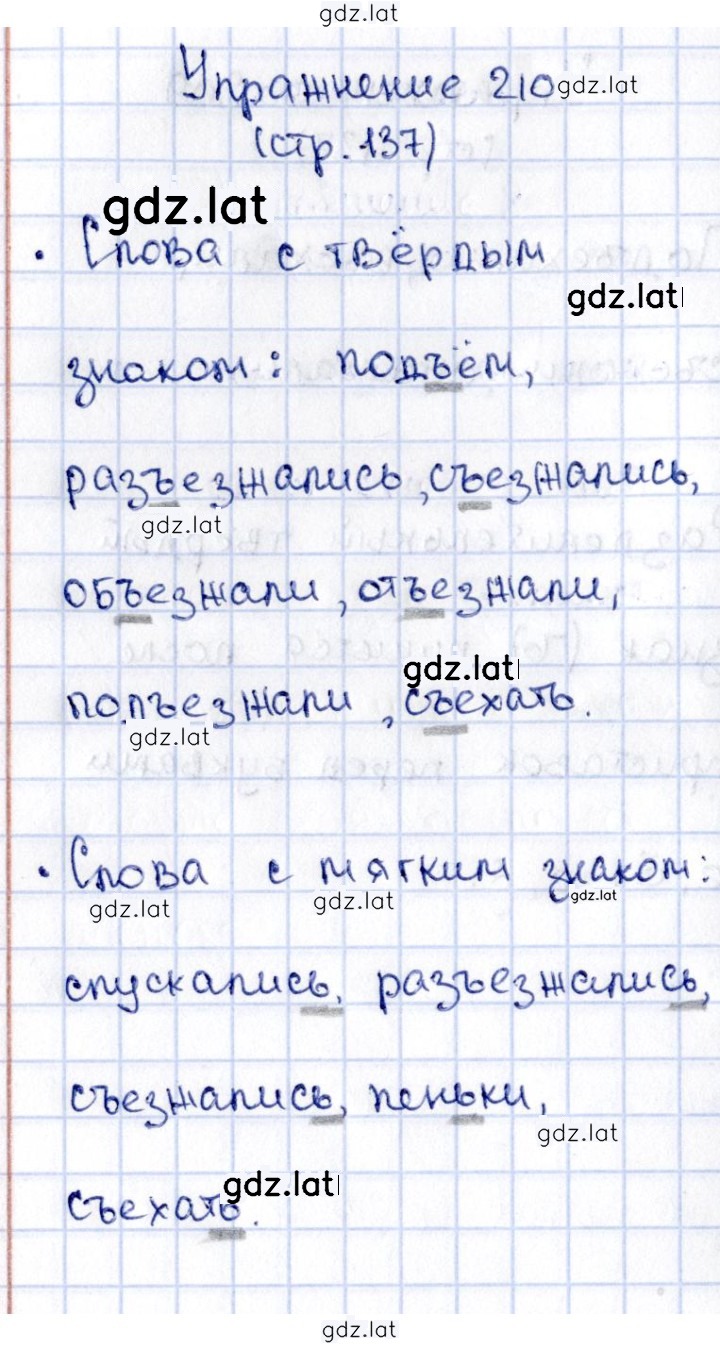 gdz.lat
Упражнение 210 gdz.lat
(стр. 137)
gdz.lat
• Слова с твёрдым
gdz.lat
знаком: подъём,
разъезжались, съезжались,
gdz.lat
объезжали, отъезжали,
gdz.lat
подъезжали, съехать.
gdz.lat
• Слова с мягким знаком:
gdz.lat gdz.lat gdz.lat
спускались, разъезжались,
съезжались, пеньки,
gdz.lat
gdz.lat
съехать.
gdz.lat